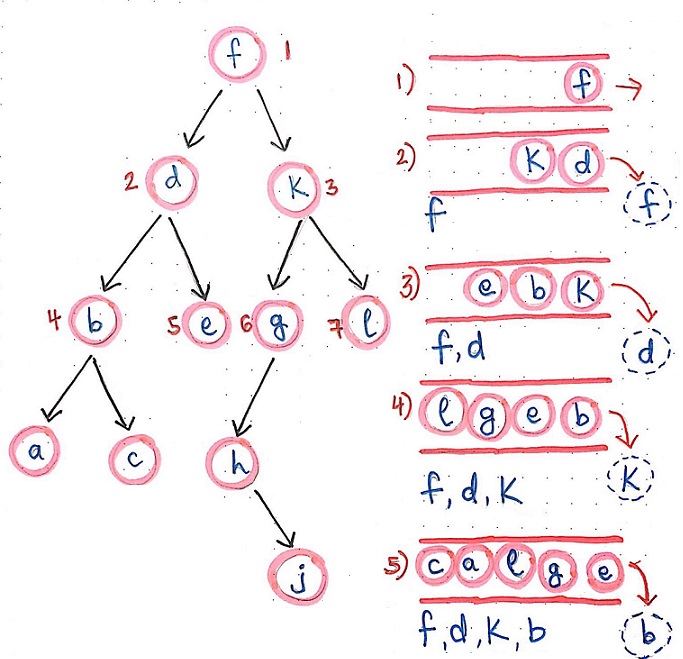 f 1
2 d K 3
4 b 5 e 6 g 7 l
a c h
j
1) f
2) K d
f f
3) e b K
f, d d
4) l g e b
f, d, K K
5) c a l g e
f, d, K, b b